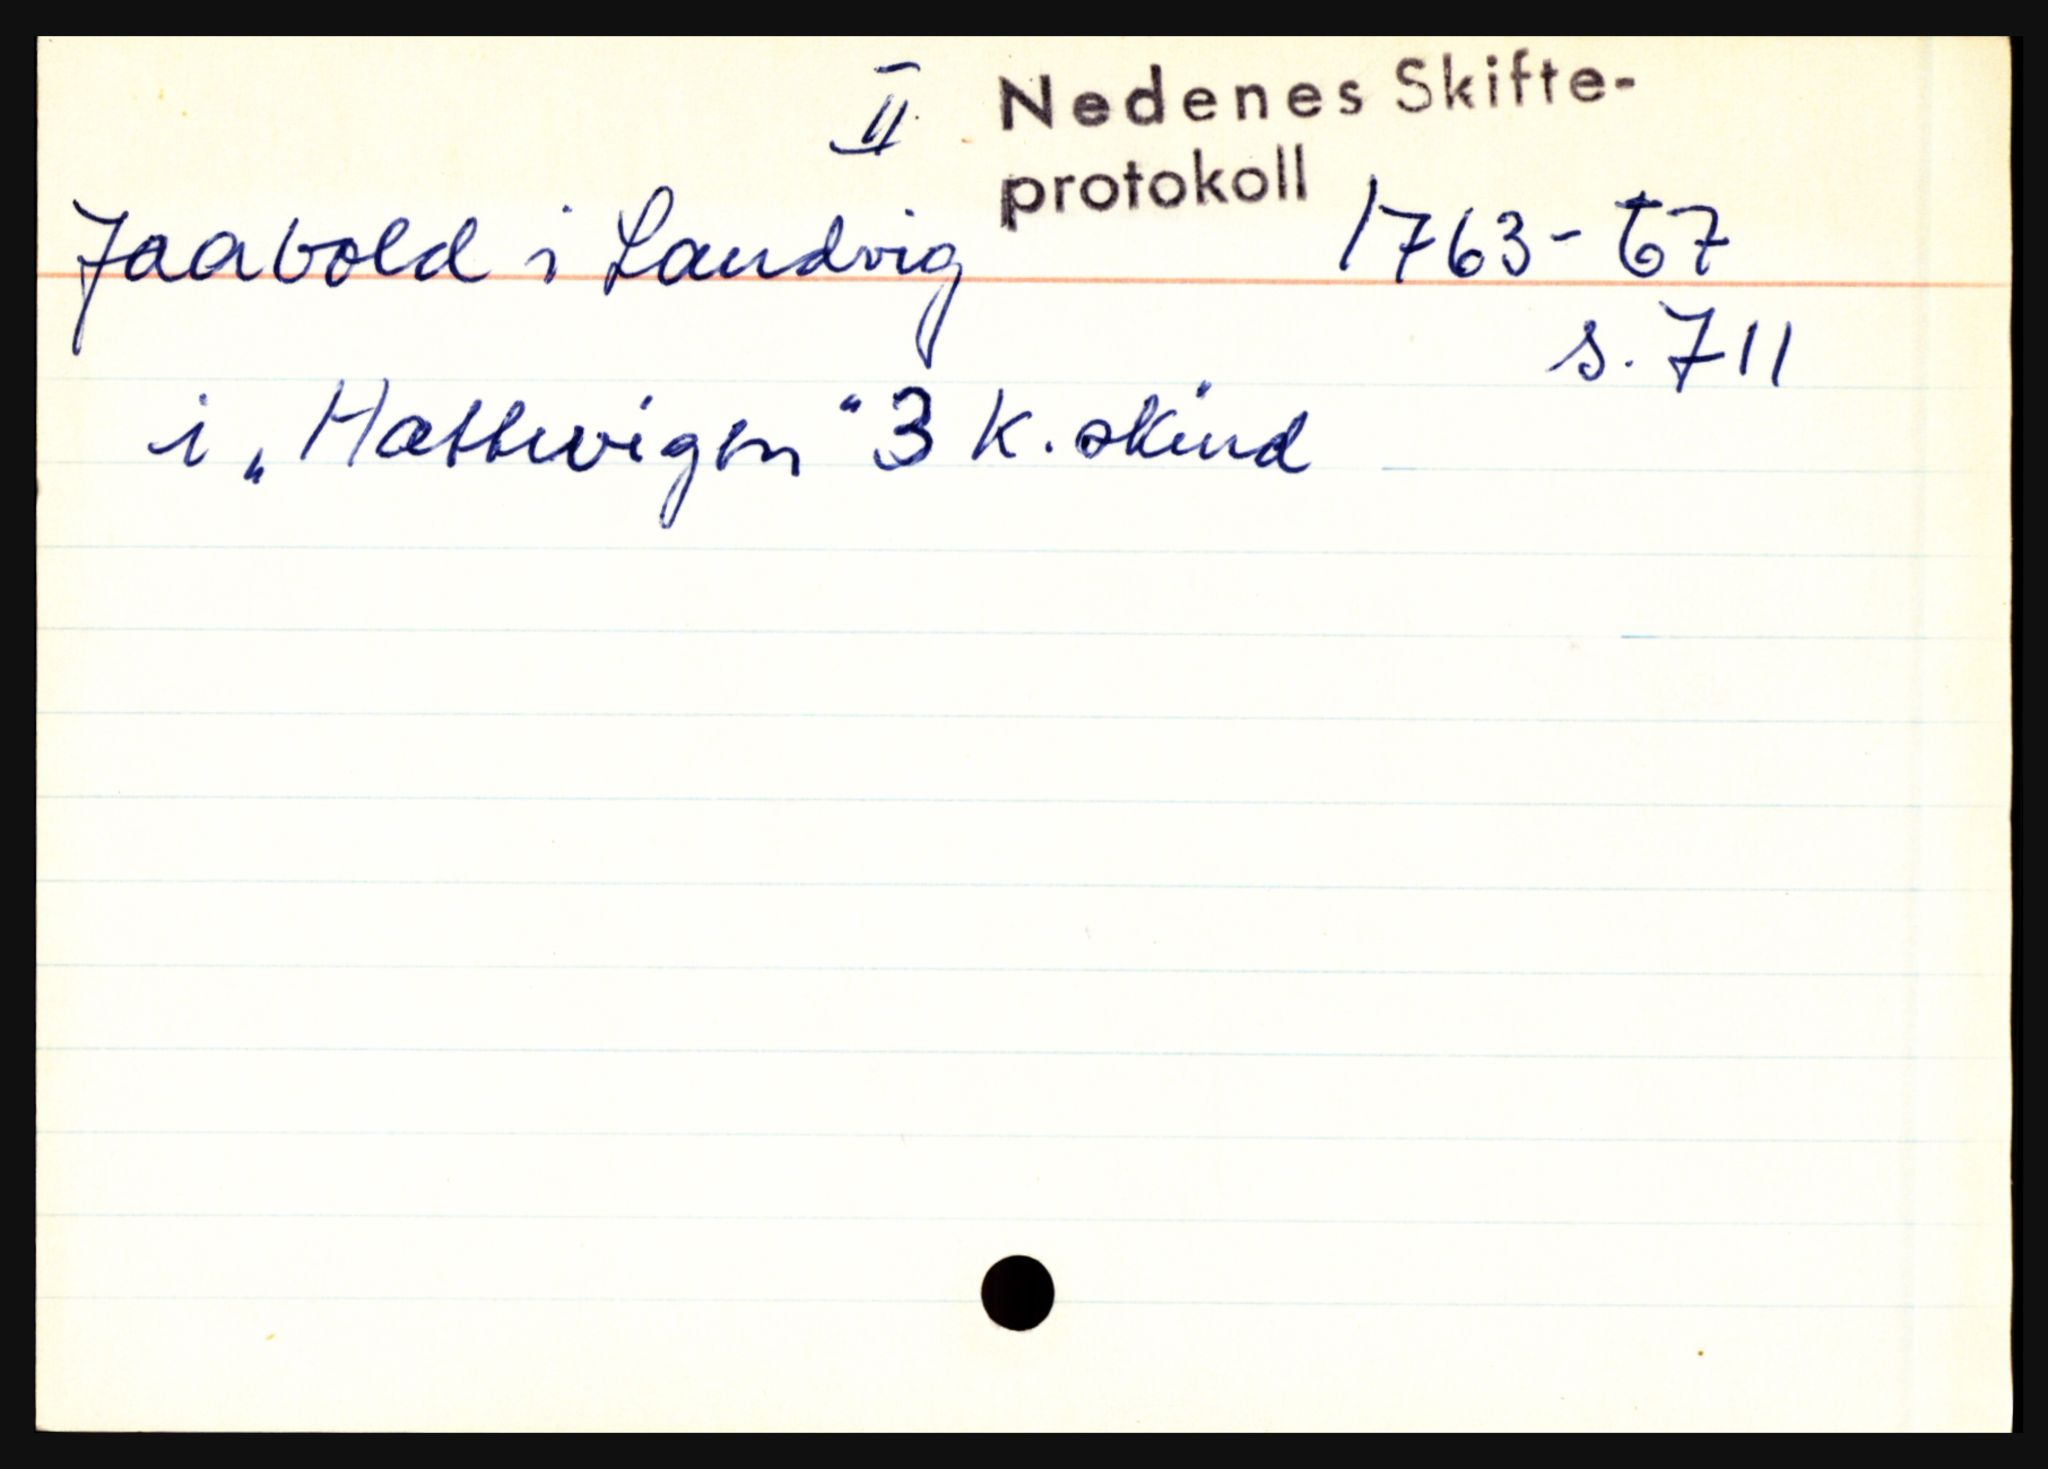 II Nedenes Skifte-
protokoll
Jaabold i Landvig 1763-67
s. 711
i „Hattevigen" 3 k. skind